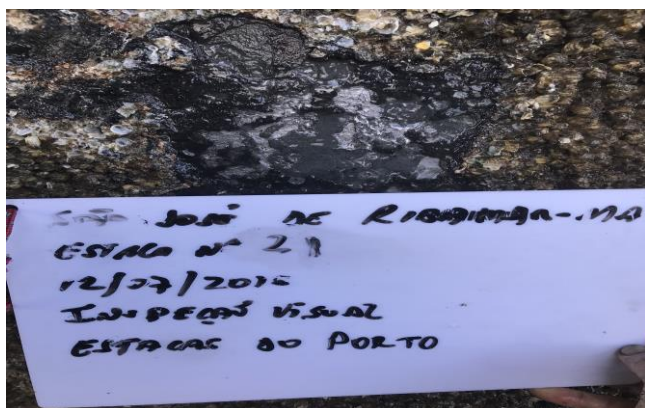 SÃO JOSÉ DE RIBAMAR-MA
ESTACA Nº
12/07/
INSPEÇÃO VISUAL
ESTACAS DO PORTO